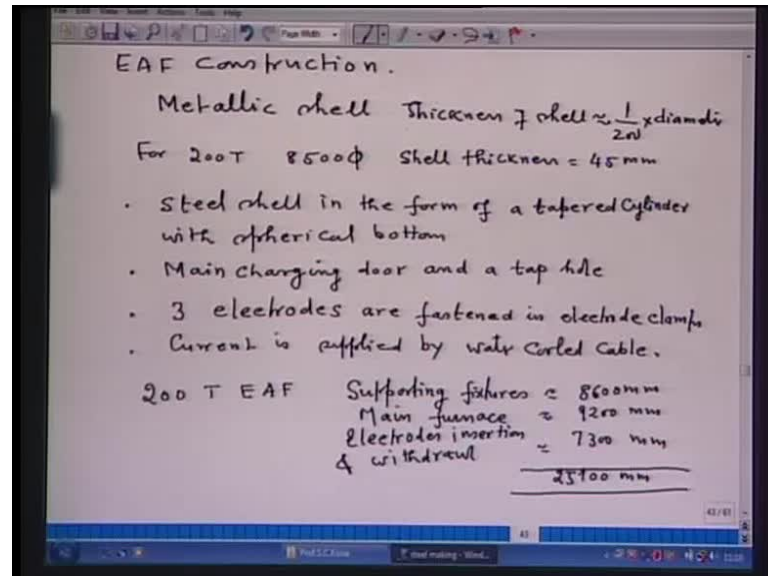 Page Width
EAF Construction.
Metallic shell Thickness of shell ≈ 1/200 x diameter
For 200T 8500ϕ Shell thickness = 45 mm
. Steel shell in the form of a tapered Cylinder
with spherical bottom
. Main charging door and a tap hole
. 3 electrodes are fastened in electrode clamps
. Current is supplied by water Corled Cable.
200 T EAF Supporting fixtures ≈ 8600mm
Main furnace ≈ 9200 mm
Electrodes insertion ≈ 7300 mm
& withdrawl
25100 mm
43/61
43
steel making - Wind...